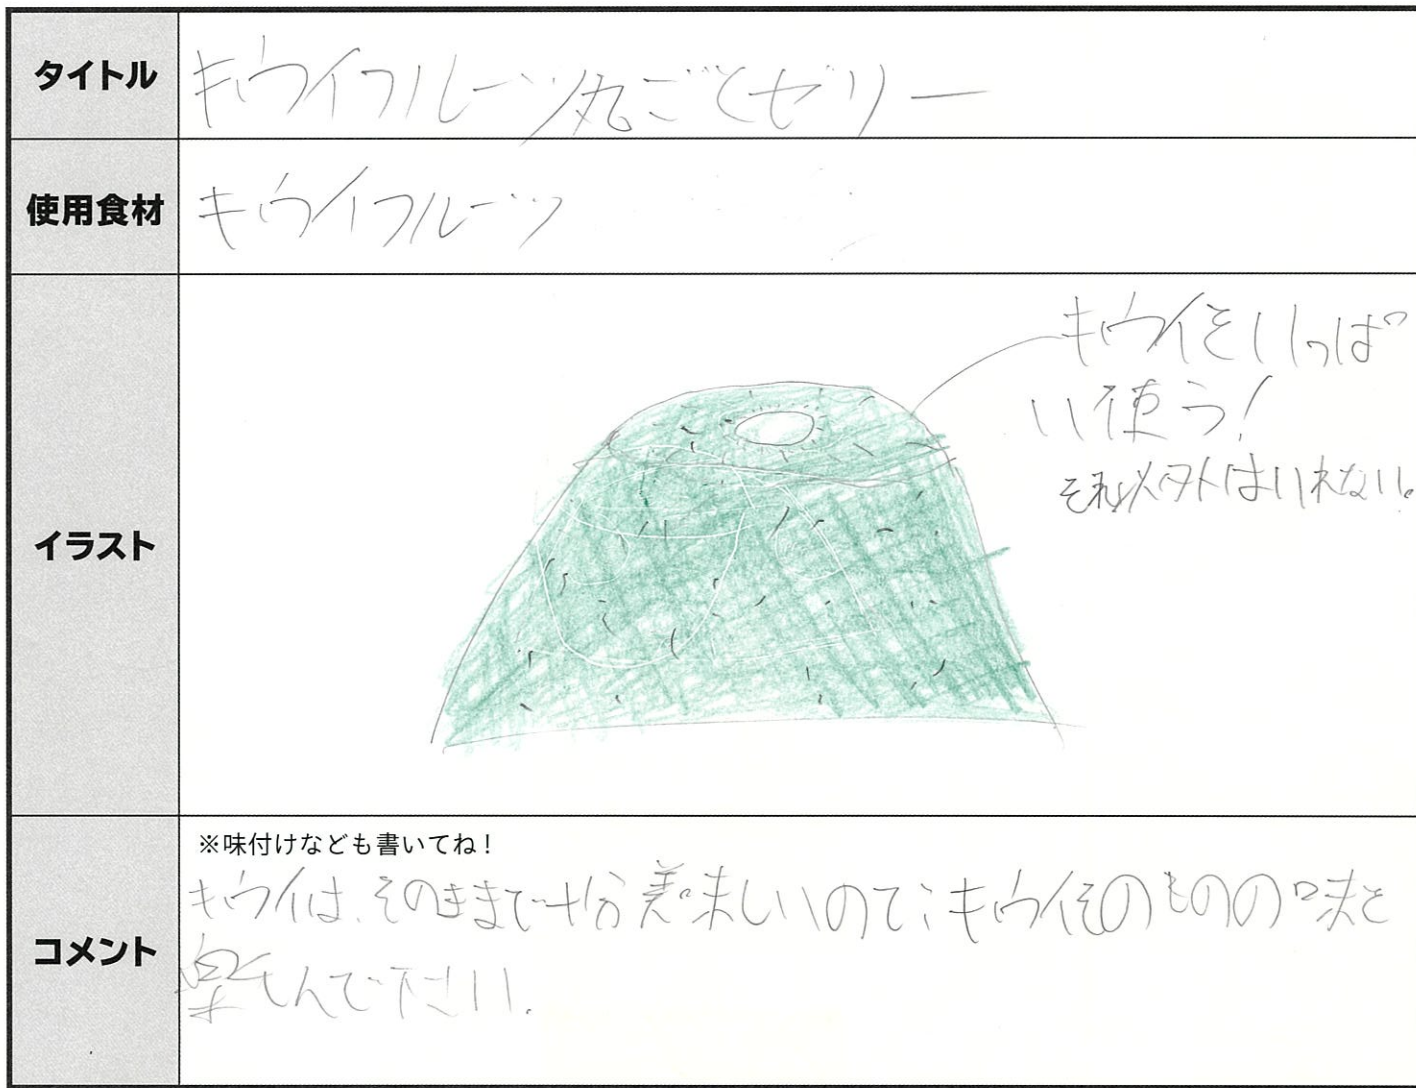 タイトル
キウイフルーツ丸ごとゼリー
使用食材
キウイフルーツ
イラスト
キウイをいっぱ
い使う!
それ以外はいれない。
コメント
※味付けなども書いてね!
キウイは、そのままで十分美味しいので、キウイそのものの味を
楽しんで下さい。